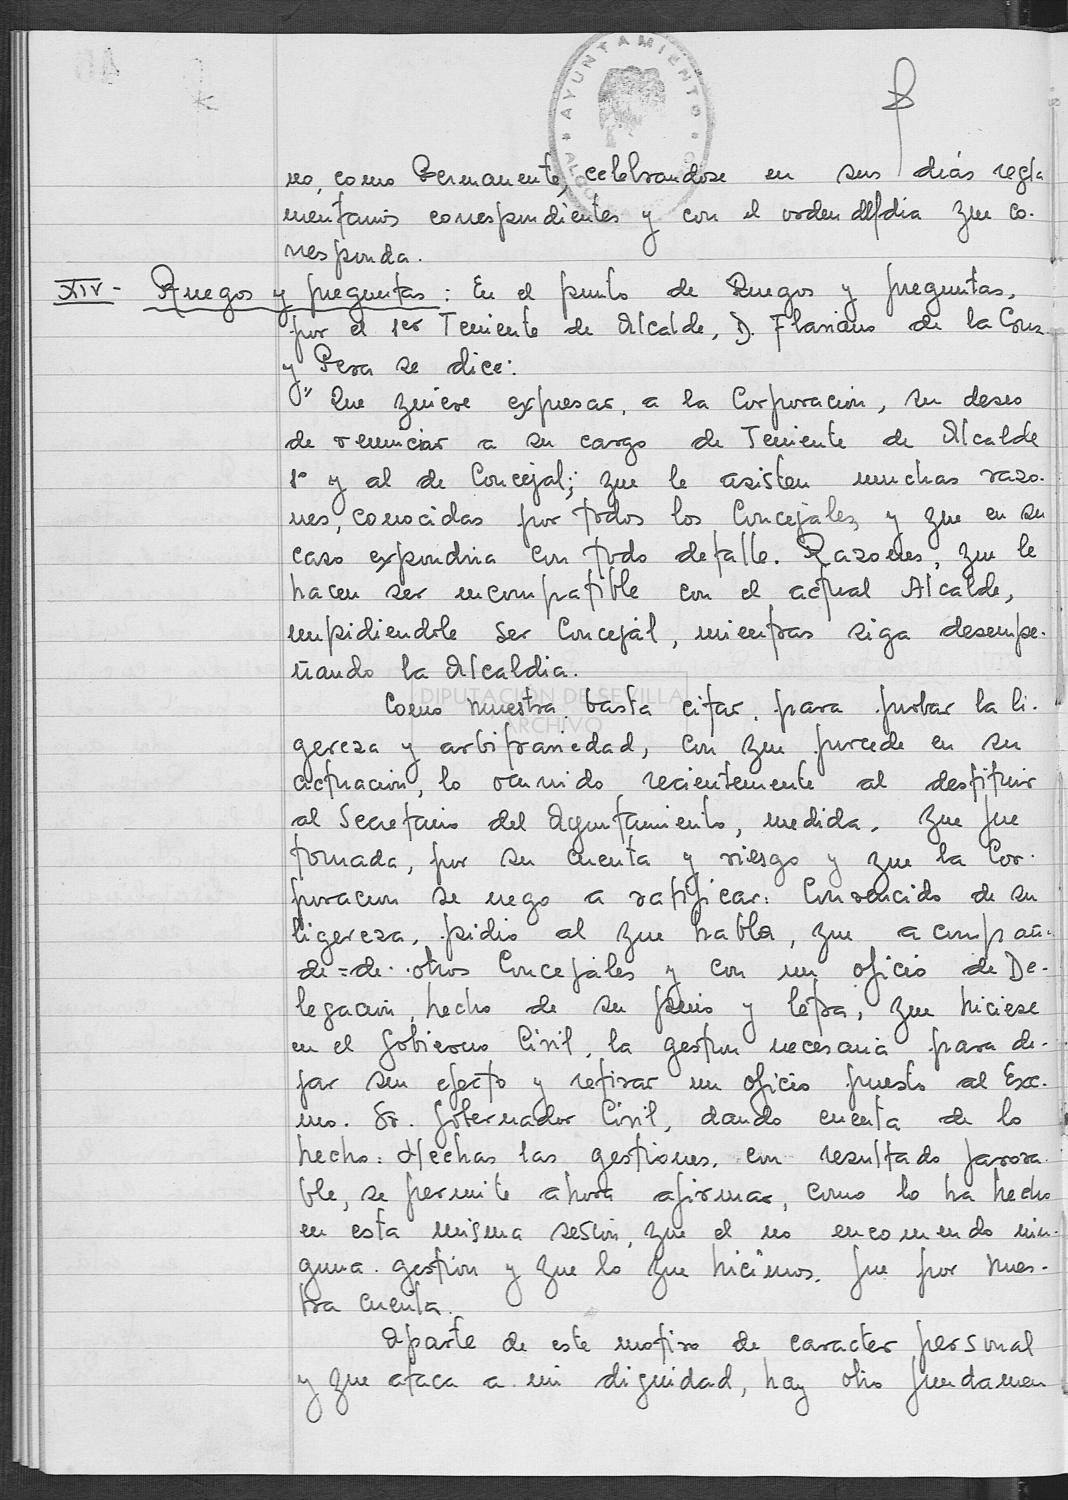 AYUNTAMIENTO
no, como Permanente, celebrandose en sus dias regla
mentarios correspondientes y con el orden del dia que co-
rresponda.
XIV- Ruegos y preguntas: En el punto de Ruegos y preguntas,
por el 1er Teniente de Alcalde, D. Flaviano de la Cruz
y Pera se dice:
"Que quiere expresar, a la Corporacion, su deseo
de renunciar a su cargo de Teniente de Alcalde
1º y al de Concejal; que le asisten muchas razo-
nes, conocidas por todos los Concejales y que en su
caso expondria con todo detalle. Razones, que le
hacen ser incompatible con el actual Alcalde,
impidiendole ser Concejal, mientras siga desempe-
ñando la Alcaldia.
DIPUTACIÓN DE SEVILLA
ARCHIVO
Como muestra, basta citar, para probar la li-
gereza y arbitrariedad, con que procede en su
actuacion, lo ocurrido recientemente al destituir
al Secretario del Ayuntamiento, medida, que fue
tomada, por su cuenta y riesgo y que la Cor-
poracion se nego a ratificar: Convencido de su
ligereza, pidio al que habla, que acompañ-
de=de. otros Concejales y con un oficio de De-
legacion, hecho de su puño y letra, que hiciese
en el Gobierno Civil, la gestion necesaria para de-
jar sin efecto y retirar un oficio puesto al Exc-
mo. Sr. Gobernador Civil, dando cuenta de lo
hecho: Hechas las gestiones, con resultado favora
ble, se permite ahora afirmar, como lo ha hecho
en esta misma sesion, que el no encomendo nin-
guna gestion y que lo que hicimos, fue por nues-
tra cuenta.
Aparte de este motivo de caracter personal
y que ataca a mi dignidad, hay otro fundamen